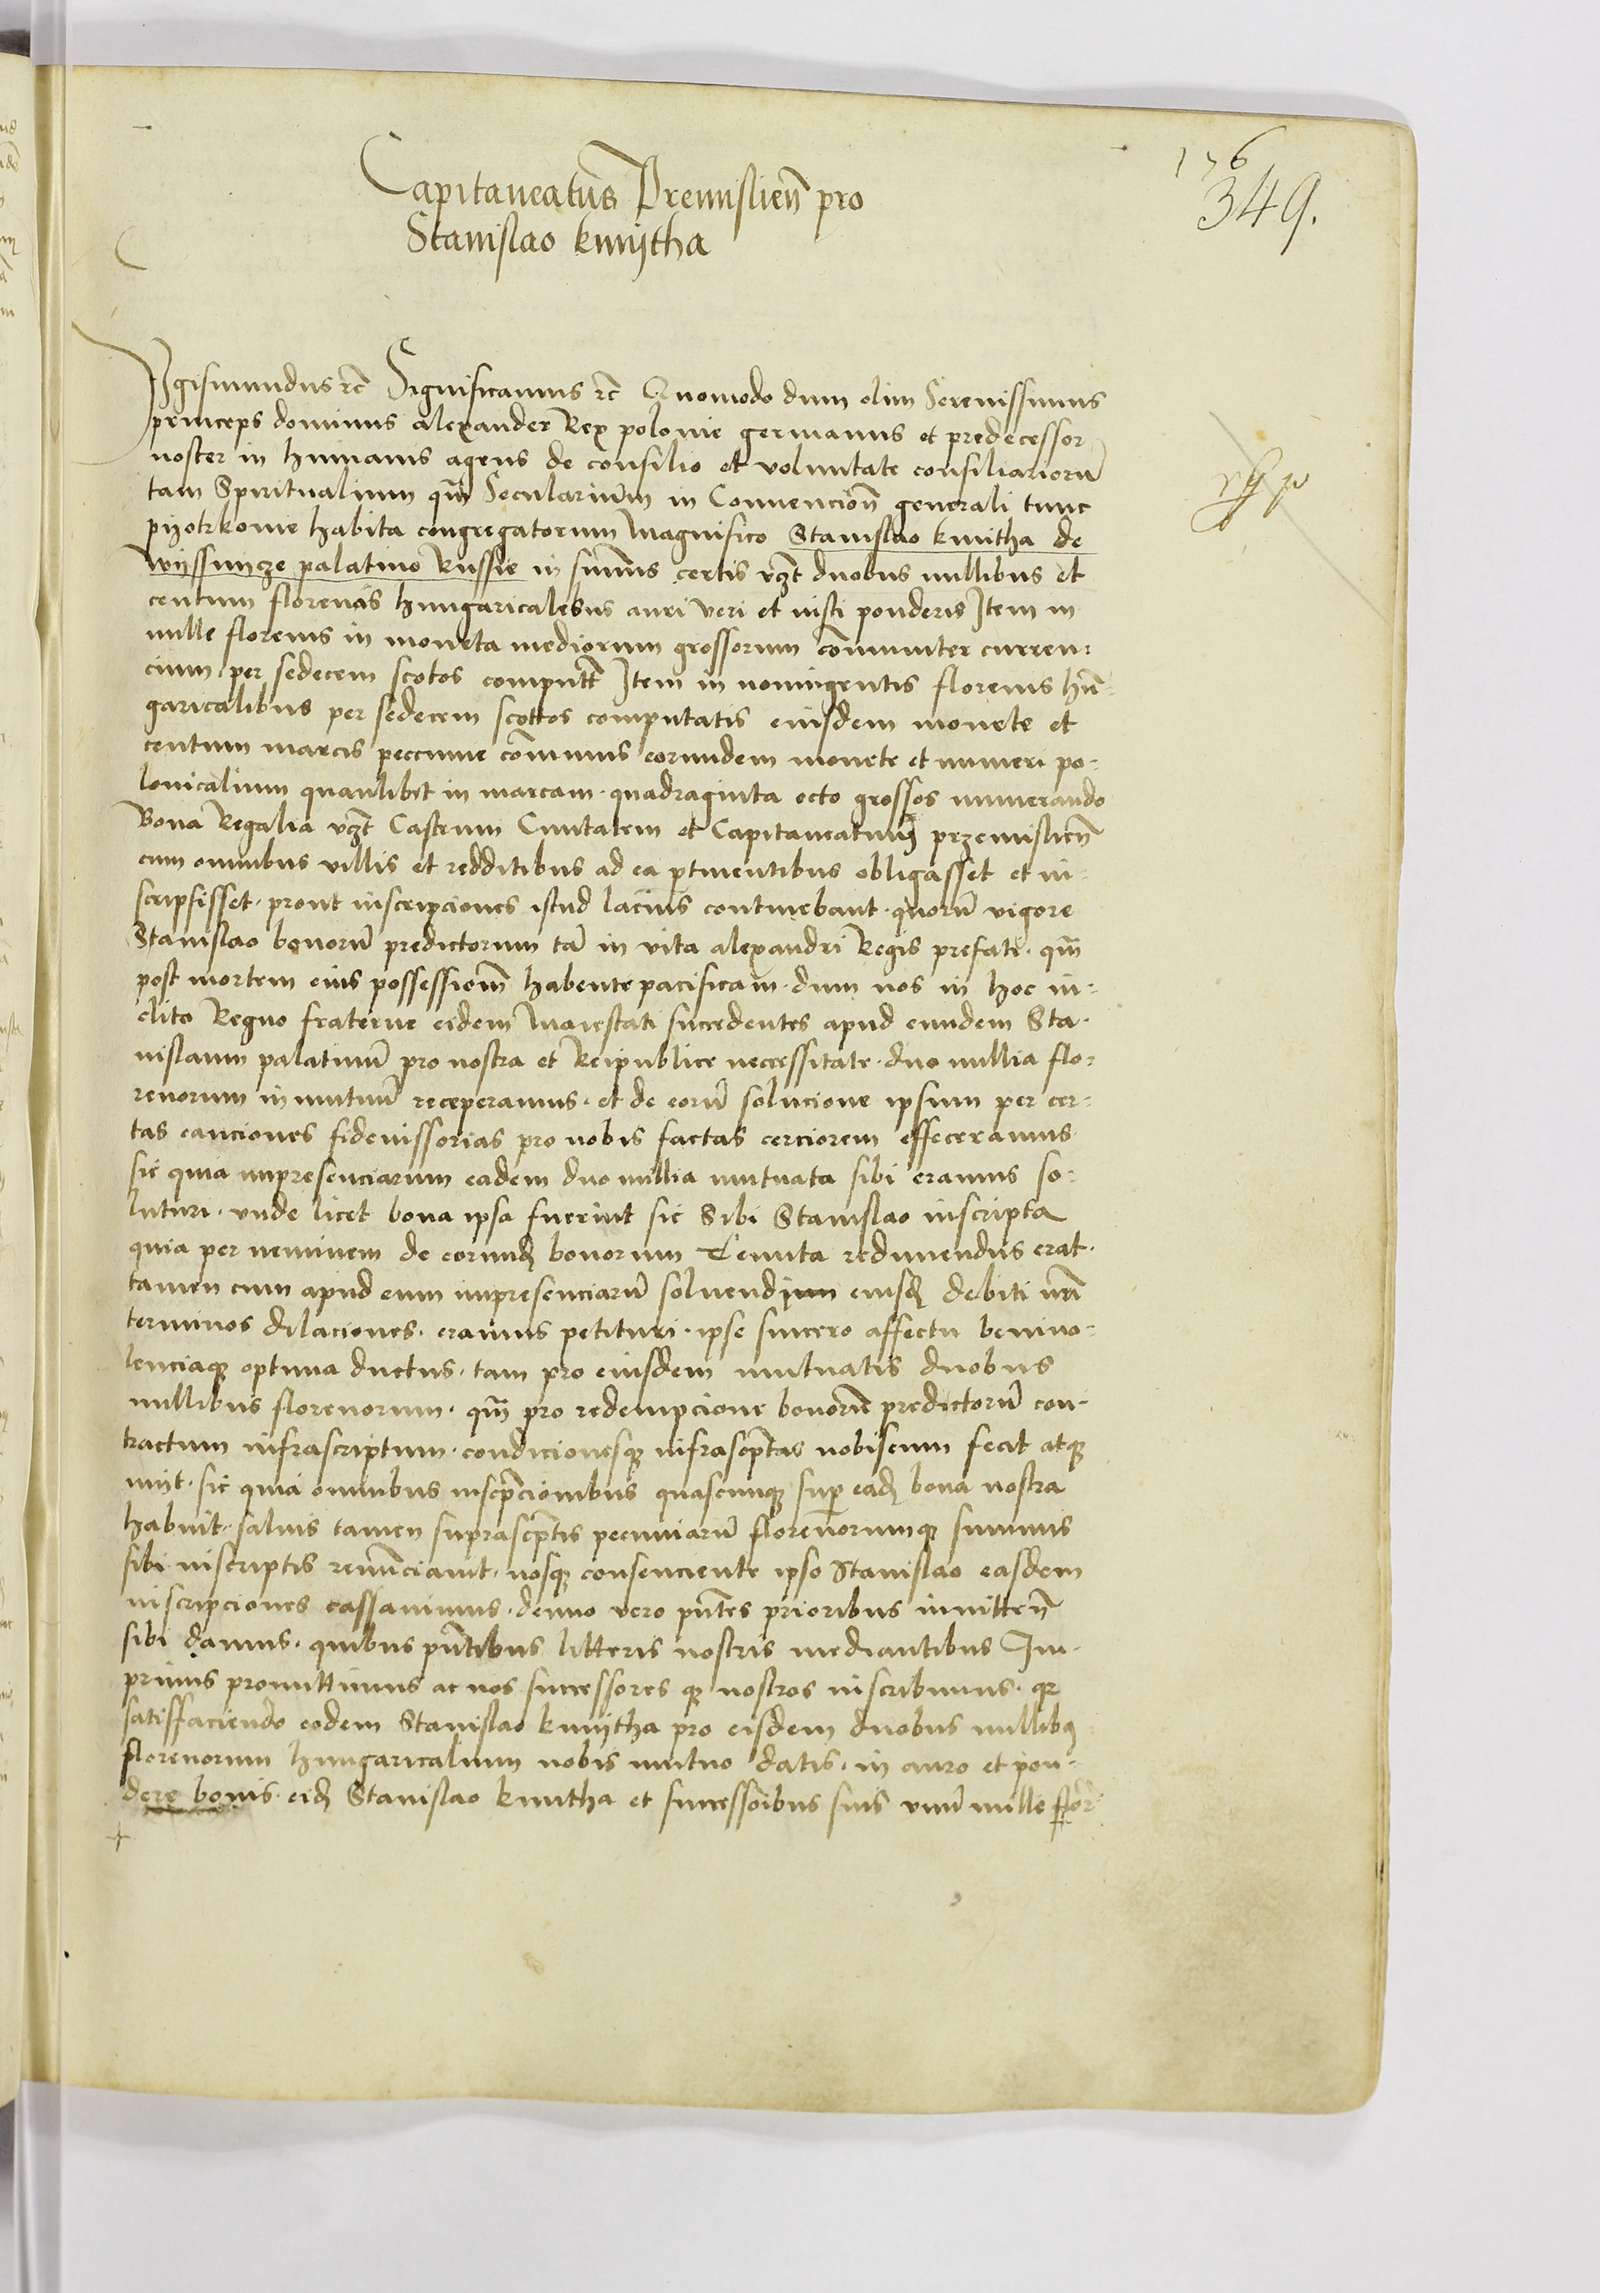 176
349.
Capitaneatus Premislien̄ pro
Stanislao kmijtha
Sigismundus etc̄ Significamus etc̄ Quomodo dum olim Serenissimus
princeps dominus alexander Rex polonie germanus et predecessor
noster in humanis agens de consilio et voluntate consiliariorū
tam Spiritualium qm̄ Secularium in Convencion̄ generali tunc
pijotrkovie habita congregatorum Magnifico Stanislao kmitha de
wijssnijcze palatino Russie in summis certis vcȝt duobus millibus et
centum florenis hungaricalibus auri veri et iusti ponderis Item in
mille florenis in moneta mediorum grossorum cōmuniter curren-
cium per sedecem scotos computat̄ Item in noningentis florenis hūn-
garicalibus per sedecem scottos computatis eiusdem monete et
centum marcis peccunie cōmunis eorundem monete et numeri po-
lonicalium quamlibet in marcam quadraginta octo grossos numerando
Bona Regalia vcȝt Castrum Civitatem et Capitaneatum przemislien̄
cum omnibus villis et redditibus ad ea ptinentibus obligasset et in-
scripsisset. prout inscripciones istud lacius continebant. quorū vigore
Stanislao bonorū predictorum tā in vita alexandri Regis prefati. qm̄
post mortem eius possessionem̄ habente pacificam. dum nos in hoc in-
clito Regno fraterne eidem Maiestati succedentes apud eundem Sta-
nislaum palatinū pro nostra et Reipublice neccessitate. duo millia flo-
renorum in mutuū receperamus. et de eorū solucione ipsum per cer-
tas cauciones fideiussorias pro nobis factas cerciorem effeceramus
sic quia impresenciarum eadem duo millia mutuata sibi eramus so-
luturi. unde licet bona ipsa fuerint sic Sibi Stanislao inscripta
quia per neminem de eorund bonorum Tenuta redimendus erat.
tamen cum apud eum impresenciarū solvendium eiusd debiti nrī
terminos dilaciones. eramus petituri. ipse sincero affectu benivo-
lenciaque optima ductus. tam pro eiusdem mutuatis duobus
millibus florenorum. qm̄ pro redempcione bonorū predictorū con-
tractum infrascriptum. condicionesque infrascptas nobiscum fecit atque
iniit. sic quia omnibus inscpcionibus quascunque sup ead bona nostra
habuit. salvis tamen suprascptis pecuniarū florenorumque summis
sibi inscriptis renūnciavit. nosque consenciente ipso Stanislao easdem
inscripciones cassavimus. denuo vero pn̄tes prioribus inniten̄
sibi damus. quibus pn̄tibus litteris nostris mediantibus Im-
primis promittimus ac nos successores que nostros inscribimus. qr
satisfaciendo eodem Stanislao kmijtha pro eisdem duobus millibus
florenorum hungaricalium nobis mutuo datis. in auro et pon-
dere bonis. eid Stanislao kmitha et successoibus suis unū mille flor